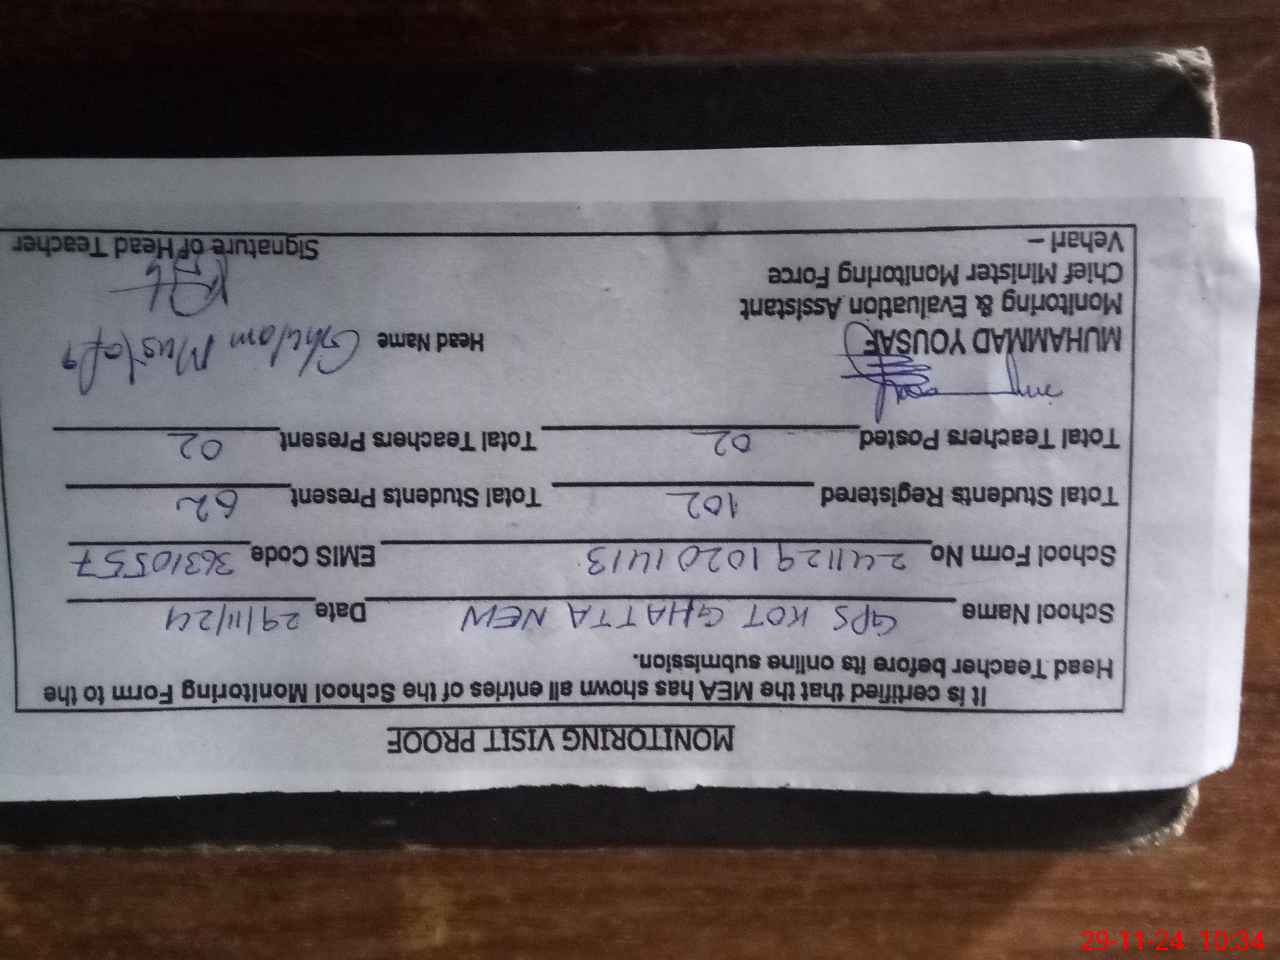 MONITORING VISIT PROOF
It is certified that the MEA has shown all entries of the School Monitoring Form to the
Head Teacher before its online submission.
School Name GPS KOT GHATTA NEW Date 29/11/24
School Form No 24112910201413 EMIS Code 36310557
Total Students Registered 102 Total Students Present 62
Total Teachers Posted 02 Total Teachers Present 02
MUHAMMAD YOUSAF Head Name Ghulam Mustafa
Monitoring & Evaluation Assistant
Chief Minister Monitoring Force
Vehari – Signature of Head Teacher
29-11-24 10:34